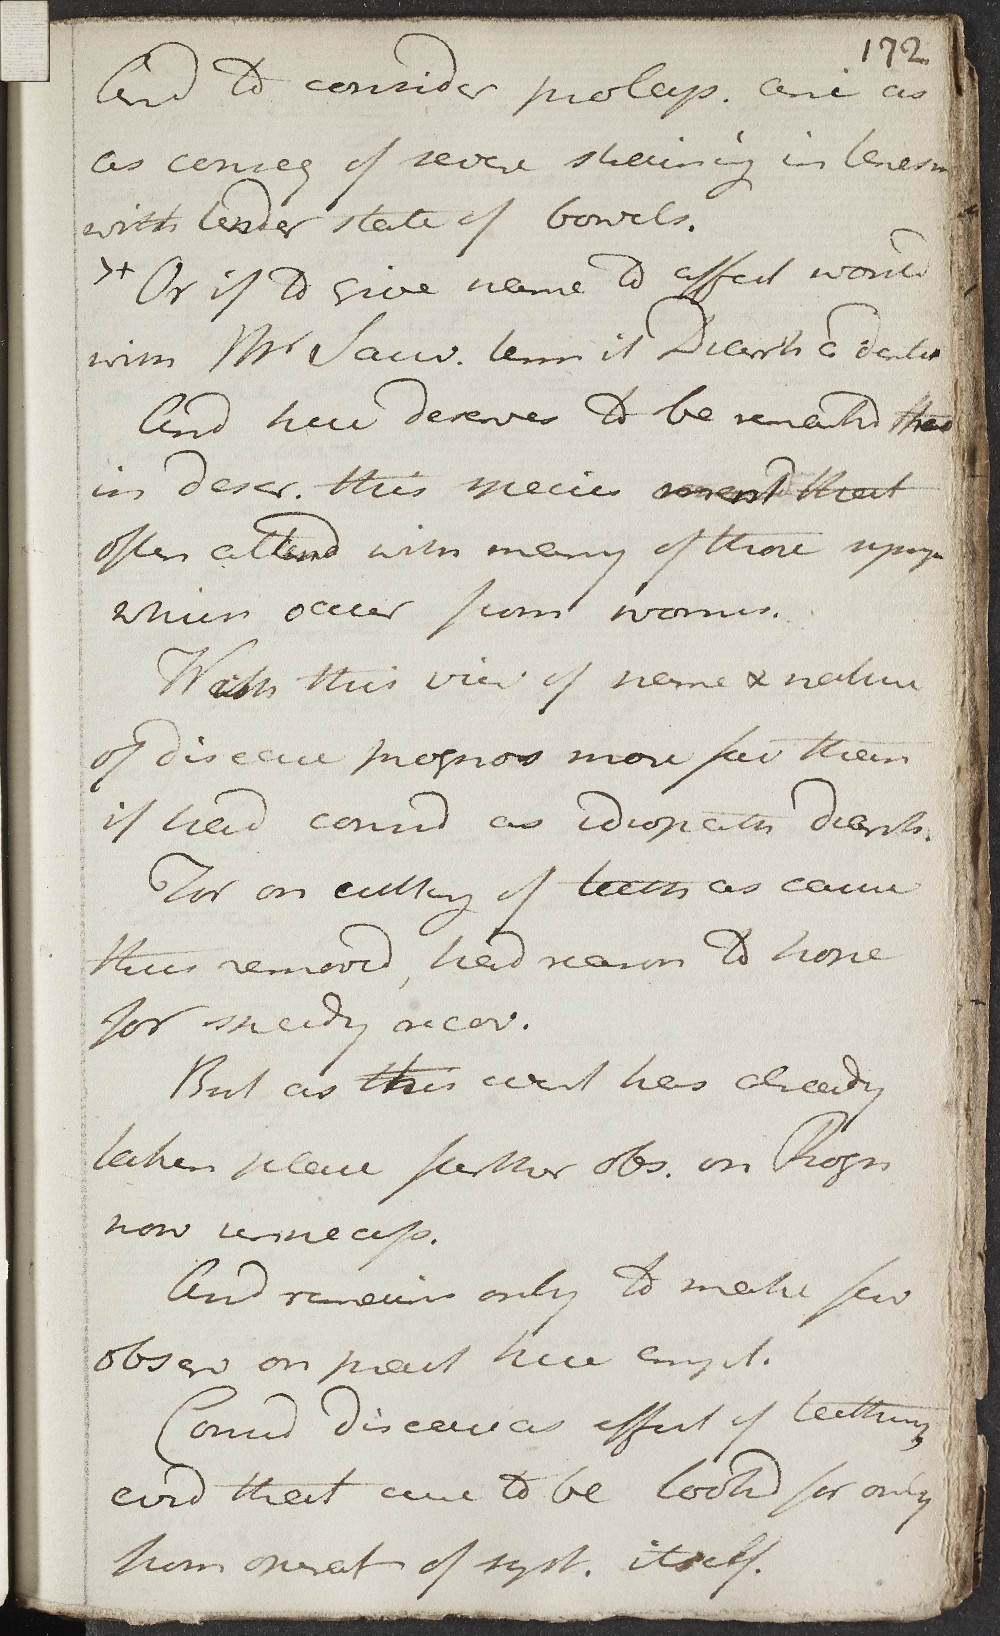 172
And to consider prolaps. ani as
as conseq of severe straining in tenesm
with tender state of bowels.
Or if to give name to affect would
with Mr Sauv. term it Diarrh a dentit
And here deserves to be remarkd that
in descr. this species that
often attend with many of those symp
which occur from worms.
With this view of name & nature
of disease prognos more fav than
if had considd as idiopath diarrh.
For on cutting of teeth as cause
thus removd, had reason to hope
for speedy recov.
But as this event has already
taken place further obs. on Progn
now unnecess.
And remains only to make few
observ on pract here empl.
Considd disease as effect of teething,
evid that cure to be lookd for only
from operat of syst. itself.